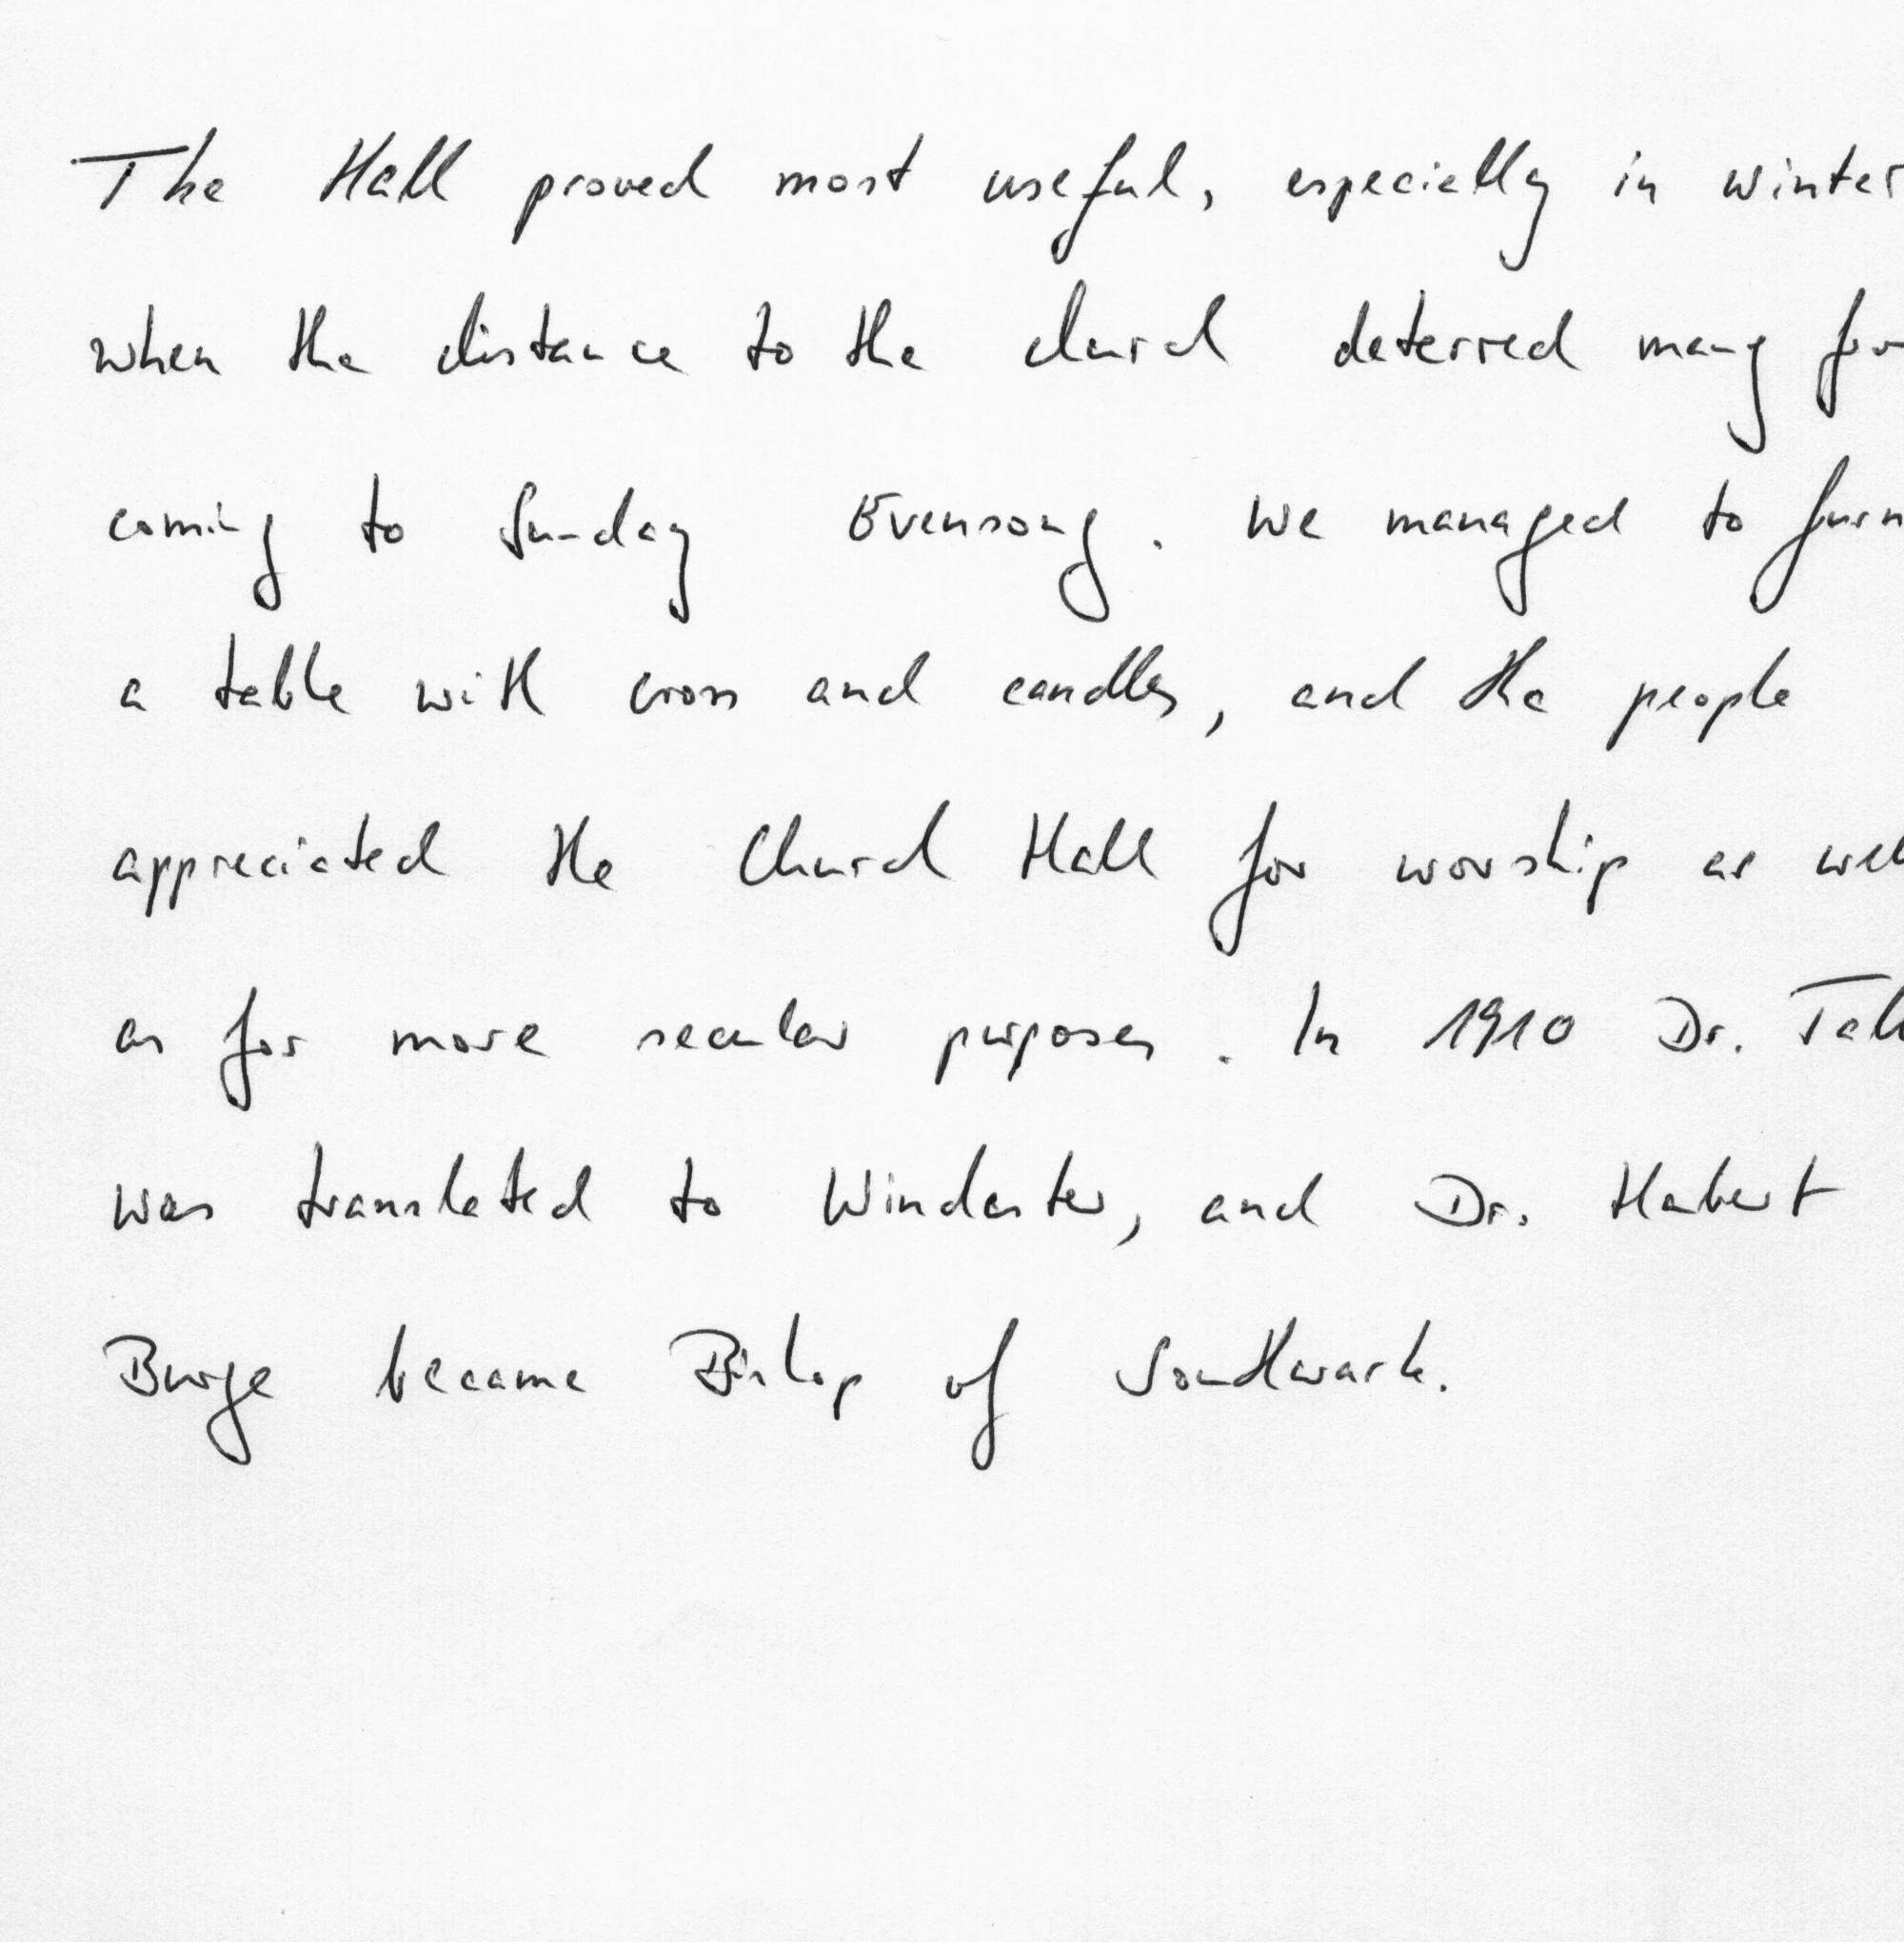 The Hall proved most useful, especially in winter
when the distance to the church deterred many fro
coming to Sunday Evensong. We managed to furn
a table with cross and candles, and the people
appreciated the Church Hall for worship as well
as for more secular purposes. In 1910 Dr. Tal
was translated to Winchester, and Dr. Hubert
Burge became Bishop of Southwark.